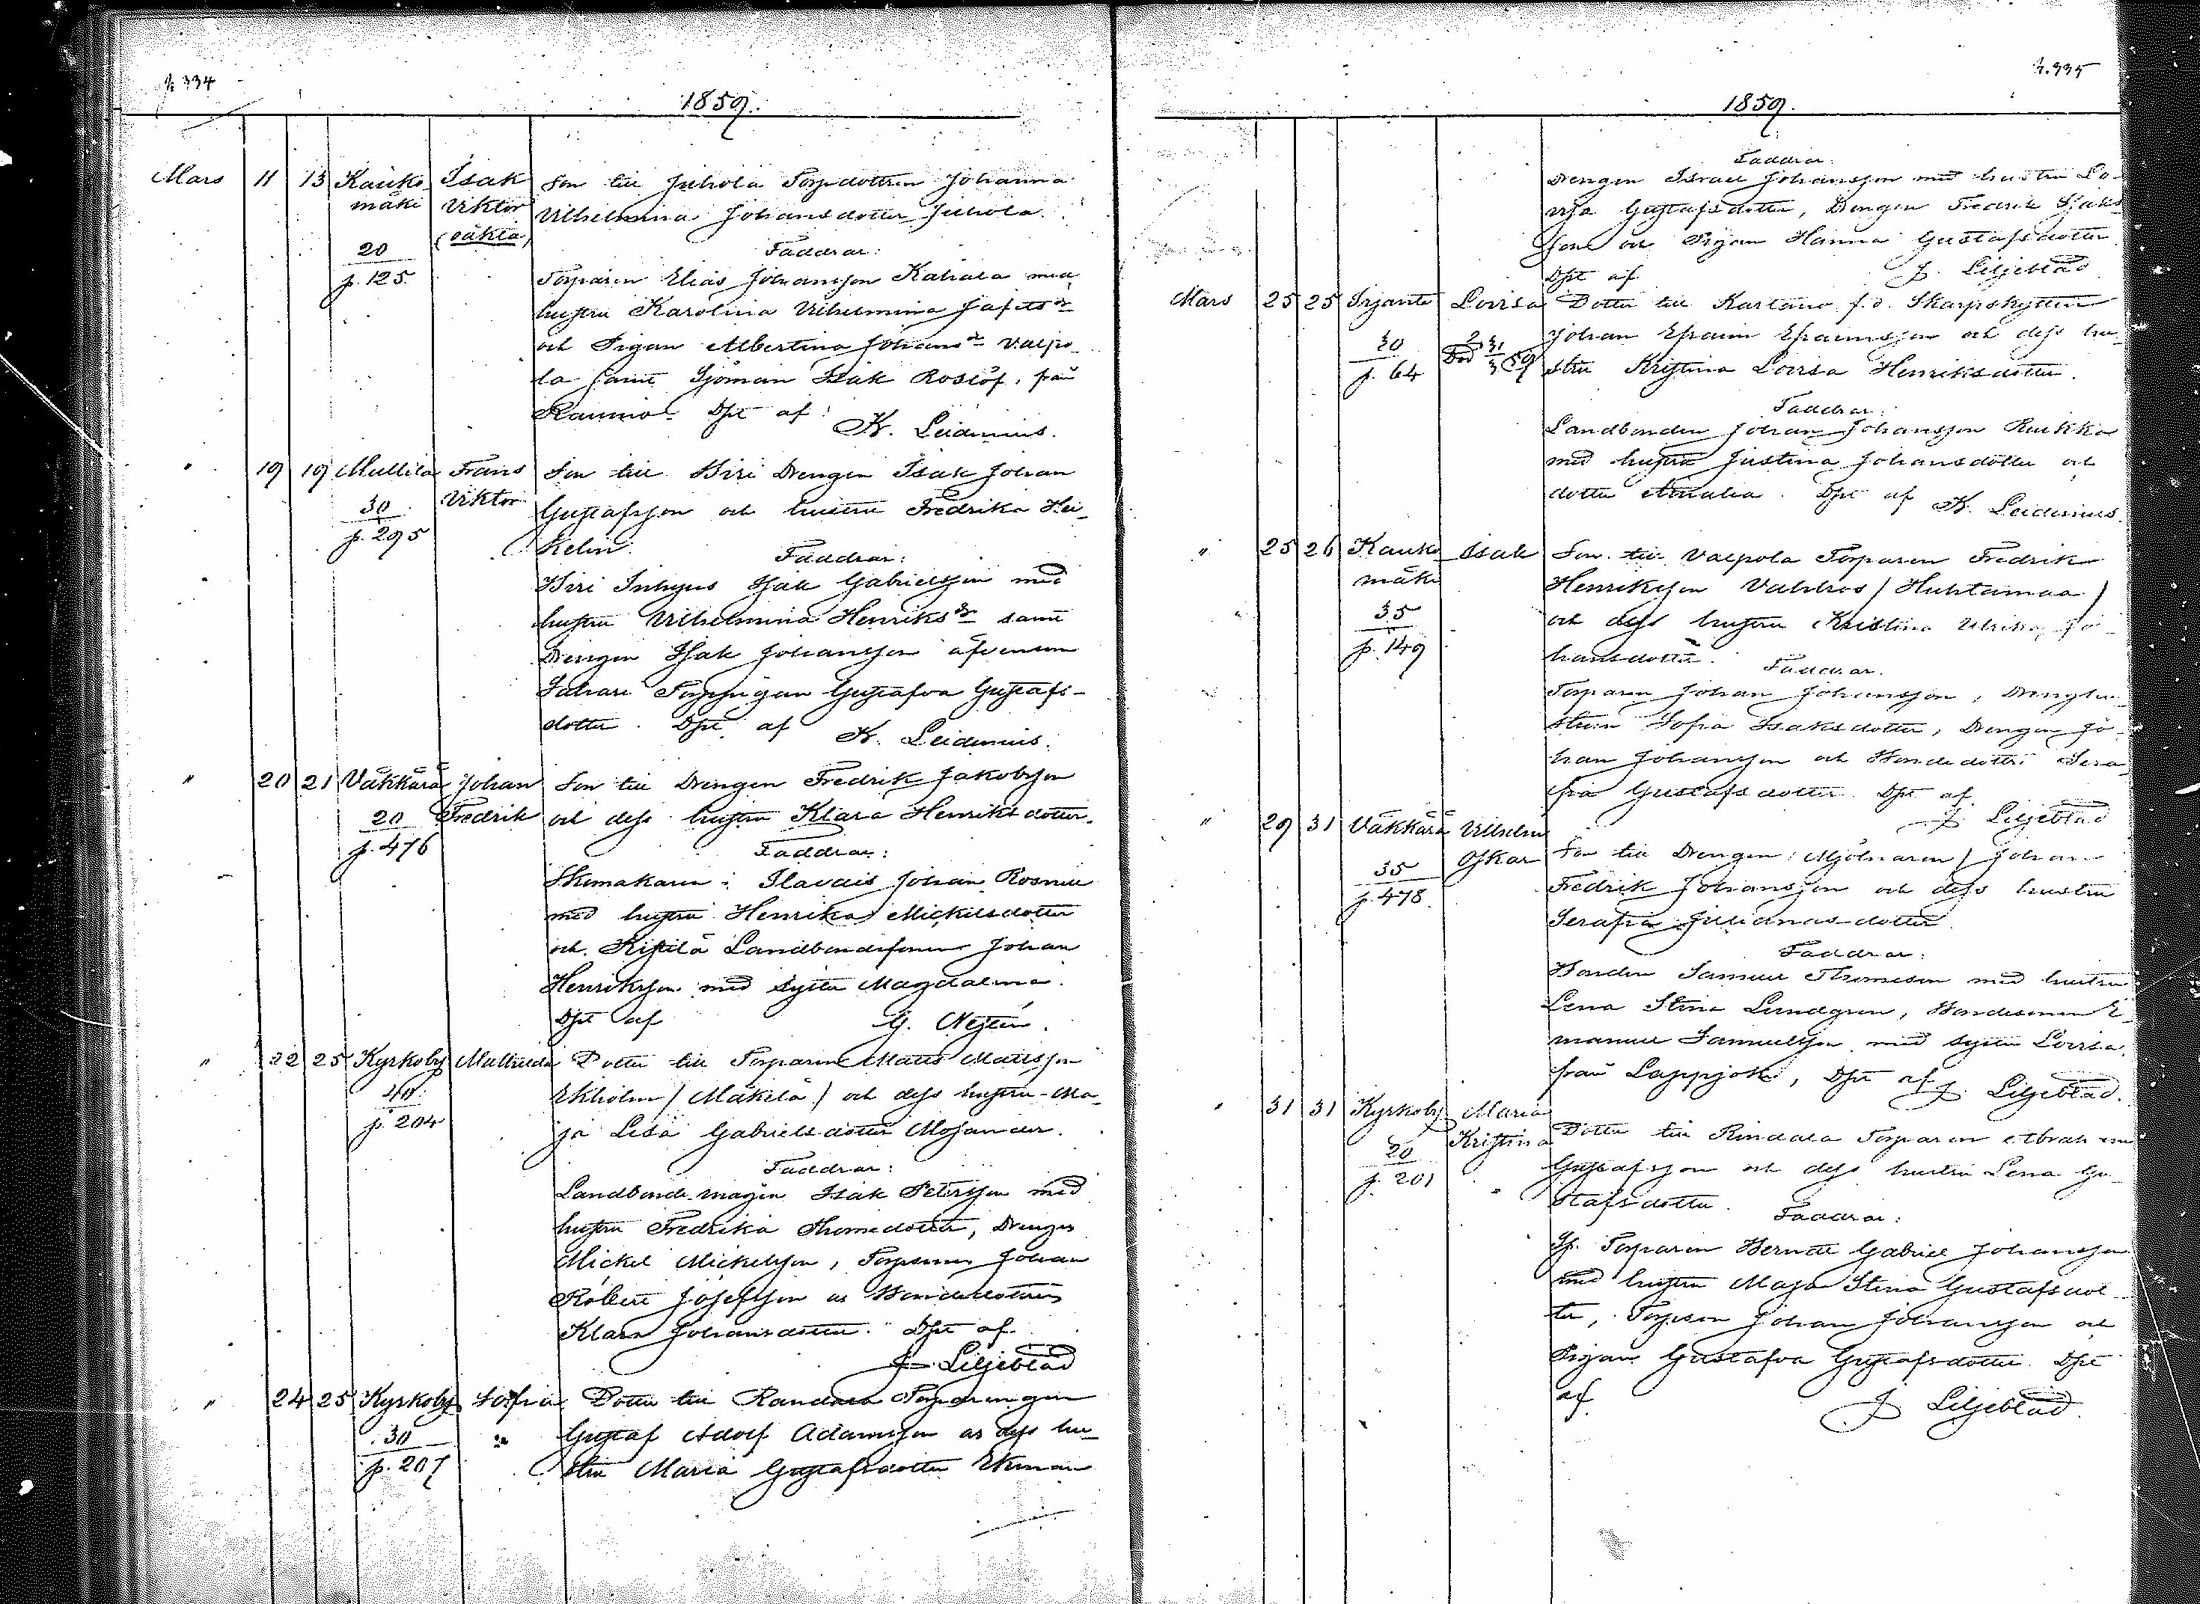 p. 334
1859.
Mars 11 13 Kauko Isak Son till Juhola Torpdottren Johanna
mäki Viktor Vilhelmina Johansdotter Juhola.
20 (oäkta) Faddrar:
p. 125. Torparen Elias Johansson Kahala med
hustru Karolina Vilhelmina Jafetsdr
och Pigan Albertina Johansdr Valpo-
la samt Sjöman Isak Roslöf, från
Raumo. Dpt af: K. Leidenius.
" 19 19 Mullila Frans Son till Hiri Drengen Isak Johan
30 Viktor Gustafsson och hustru Fredrika Hei-
p. 295 kelin. Faddrar:
Hiri Inhyses Isak Gabrielsson med
hustru Vilhelmina Henriksdr samt
Drengen Isak Johansson äfvensom
Torppigan Gustafva Gustafs-
dotter. Dpt af K. Leidenius.
" 20 21 Väkkärä Johan Son till Drengen Fredrik Jakobsson
20 Fredrik och dess hustru Klara Henriksdotter.
p. 476 Faddrar:
Skomakaren i Ilavais Johan
med hustru Henrika Mickelsdotter
och Kistilä Landbondesonen Johan
Henriksson med syster Magdalena.
Dpt af G.
" 22 25 Kyrkoby Mathilda Dotter till Torparen Matts Mattsson
40 Ekholm (Mäkelä) och dess hustru Ma-
p. 204 ja Lisa Gabrielsdotter Mosander.
Faddrar:
Landbonde-mågen Isak Petersson med
hustru Fredrika Thomedotter, Drengen
Mickel Mickelsson, Torparen Johan
Robert Josefsson o. Bondedottren
Klara Johansdotter. Dpt af
J. Liljeblad
" 24 25 Kyrkoby Sofia Dotter till Randala Torpdrengen
30 Gustaf Adolf Adamsson o. dess hu-
p. 207 stru Maria Gustafsdotter Ekman
p. 335
1859.
Faddrar:
Drengen Israel Johansson med hustru Lo-
visa Gustafsdotter, Drengen Fredrik Isaks-
son och Pigan Hanna Gustafsdotter.
Dpt af J. Liljeblad
Mars 25 25 Irjanto Lovisa Dotter till Kartano f.d. Skarpskytten
30 Död 31/3 59 Johan Efraim Efraimsson och dess hu-
p. 64 stru Kristina Lovisa Henriksdotter.
Faddrar:
Landbonden Johan Johansson Ruikka
med hustru Justina Johansdotter och
dotter Amalia. Dpt af K. Leidenius.
" 25 26 Kauko Isak Son till Valpola Torparen Fredrik
mäki Henriksson Valdros (Huhtamaa)
35 och dess hustru Kristina Ulrika Jo-
p. 149 hansdotter. Faddrar.
Torparen Johan Johansson, Drenghu-
strun Sofia Isaksdotter, Drengen Jo-
han Johansson och Bondedottr. Sera-
fia Gustafsdotter. Dpt af
J. Liljeblad
" 29 31 Väkkärä Vilhelm
35 Oskar Son till Drengen (Mjölnaren) Johan
p. 478 Fredrik Johansson och dess hustru
Serafia Julianasdotter.
Faddrar:
Bonden Samuel Thomesson med hustru
Lena Stina Lundgren, Bondesonen E-
manuel Samuelsson med syster Lovisa,
från Lappijoki, Dpt af J. Liljeblad.
" 31 31 Kyrkoby Maria
20 Kristina Dotter till Rindala Torparen Abraham
p. 201 Gustafsson och dess hustru Lena Gu-
stafsdotter. Faddrar:
Torparen Gabriel Johansson
med hustru Maja Stina Gustafsdot-
ter, Torpson Johan Johansson och
Pigan Gustafva Gustafsdotter. Dpt
af J. Liljeblad.